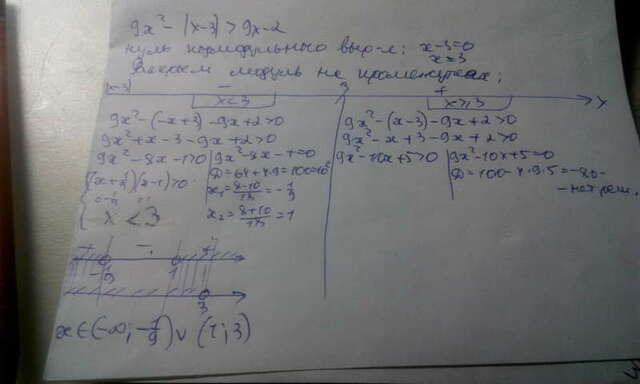 9x² - |x-3| > 9x-2
нуль подмодульного выр-я: x-3=0
x=3
Раскроем модуль на промежутках:
|x-3|
- 3 + x
x<3
x≥3
9x²-(-x+3)-9x+2>0
9x²+x-3-9x+2>0
9x²-8x-1>0
9x²-8x-1=0
D=64+4·9=100=10²
x₁=(8-10)/18=-1/9
x₂=(8+10)/18=1
(x+1/9)(x-1)>0
x<3
9x²-(x-3)-9x+2>0
9x²-x+3-9x+2>0
9x²-10x+5>0
9x²-10x+5=0
D=100-4·9·5=-80-
-нет реш.
+ - +
-1/9 1
3
x∈(-∞;-1/9)∪(1;3)